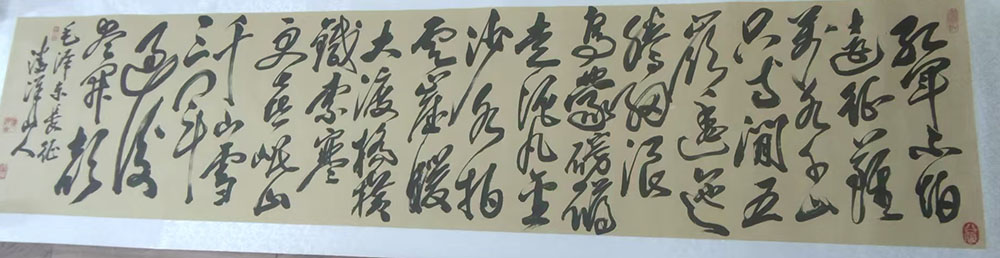 紅軍不怕
遠征難
萬水千山
只等閒五
嶺逶迤
騰細浪
烏蒙磅礴
走泥丸金
沙水拍
雲崖暖
大渡橋橫
鐵索寒
更喜岷山
千里雪
三軍
過後
盡開顏
毛澤東長征
山人